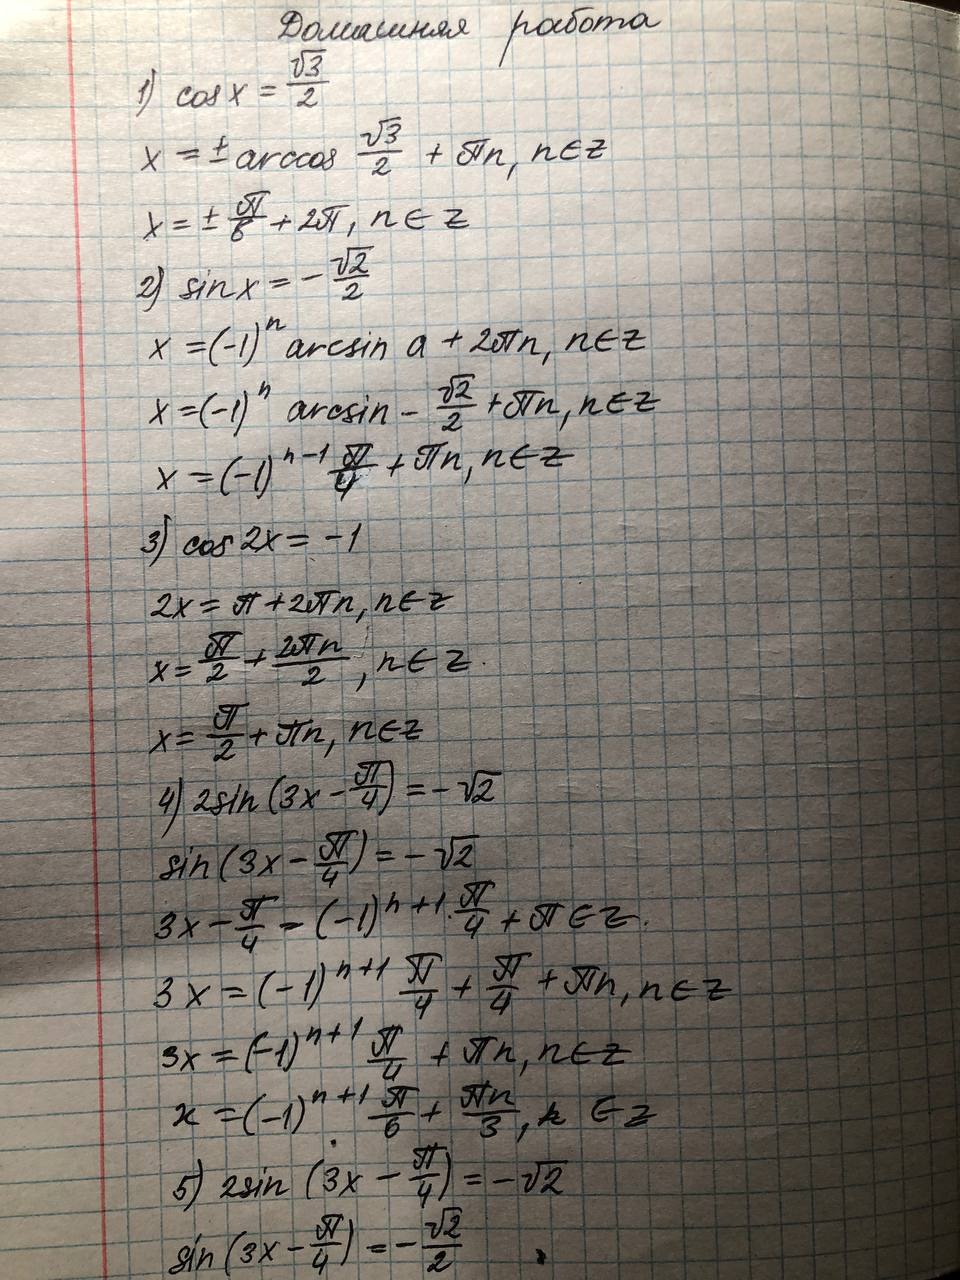 Домашняя работа
1) cos x = √3/2
x = ± arccos √3/2 + πn, n ∈ z
x = ± π/6 + 2π, n ∈ z
2) sin x = - √2/2
x = (-1)^n arcsin a + 2πn, n ∈ z
x = (-1)^n arcsin - √2/2 + πn, n ∈ z
x = (-1)^(n-1) π/4 + πn, n ∈ z
3) cos 2x = -1
2x = π + 2πn, n ∈ z
x = π/2 + 2πn/2, n ∈ z.
x = π/2 + πn, n ∈ z
4) 2sin (3x - π/4) = - √2
sin (3x - π/4) = - √2
3x - π/4 = (-1)^(n+1) · π/4 + π ∈ z.
3x = (-1)^(n+1) π/4 + π/4 + πn, n ∈ z
3x = (-1)^(n+1) π/4 + πn, n ∈ z
x = (-1)^(n+1) π/6 + πn/3, k ∈ z
5) 2sin (3x - π/4) = -√2
sin (3x - π/4) = - √2/2